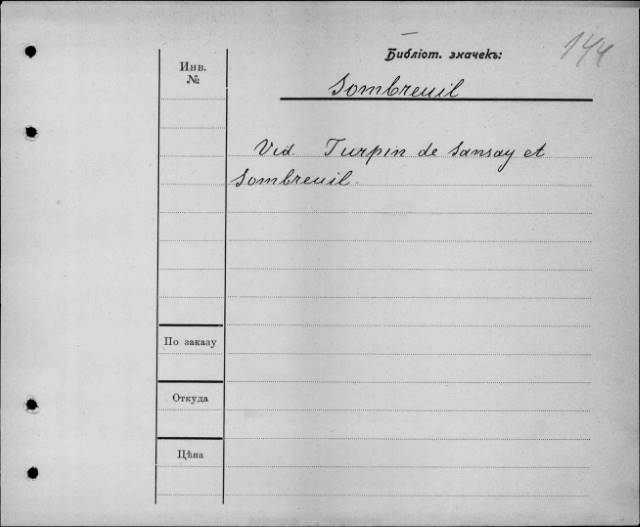 Библіот. значекъ:
144
Инв.
№
Sombreuil
Vid. Turpin de Sansay et
Sombreuil.
По заказу
Откуда
Цѣна